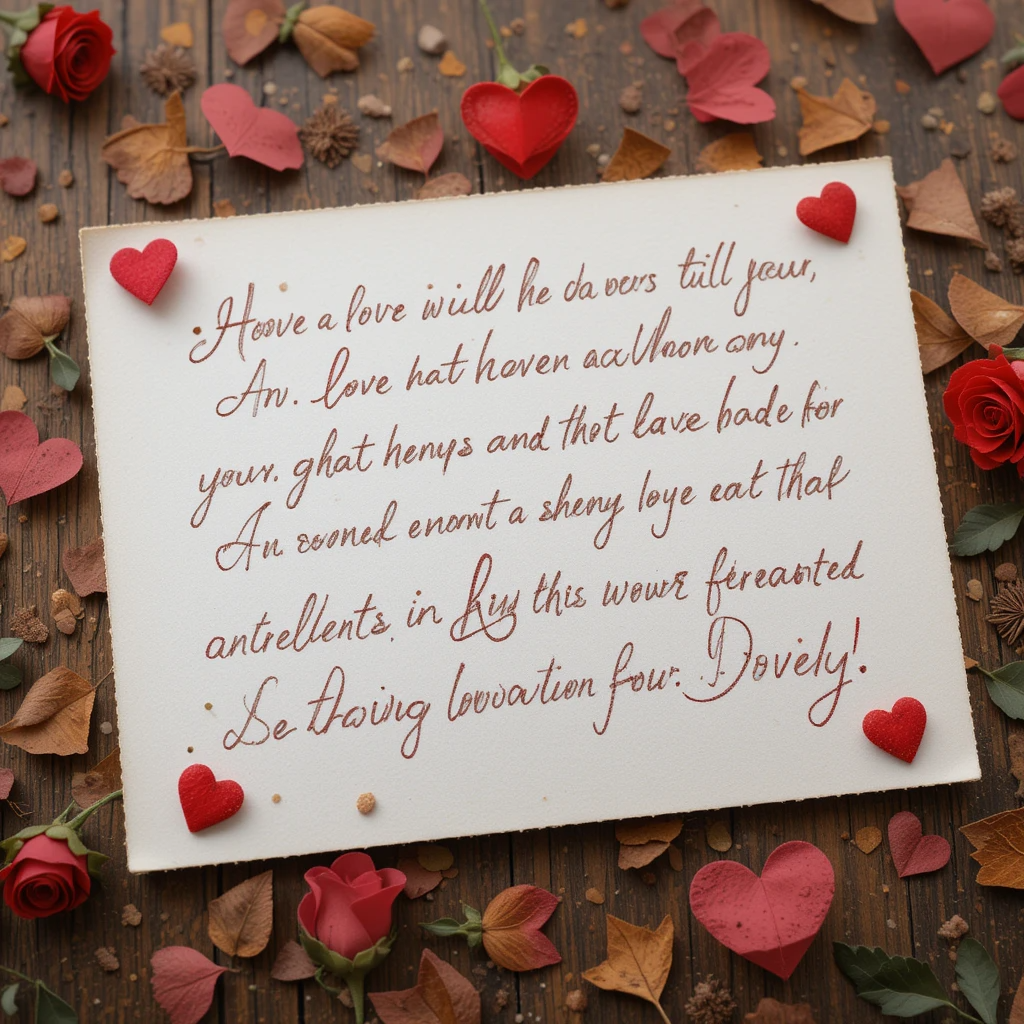 Hoove a love wiill he da vers till yeaur,
An. love hat hoven acllnore ony.
your. ghat henys and thot lave bade for
An sooned enomt a sheny loye eat that
antrellents, in this woure fereasted
Se thaoivig loovation four. Dovely!